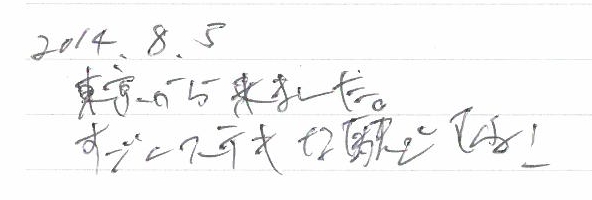 2014.8.5
東京から来ました。
すごくステキな駅ですね!